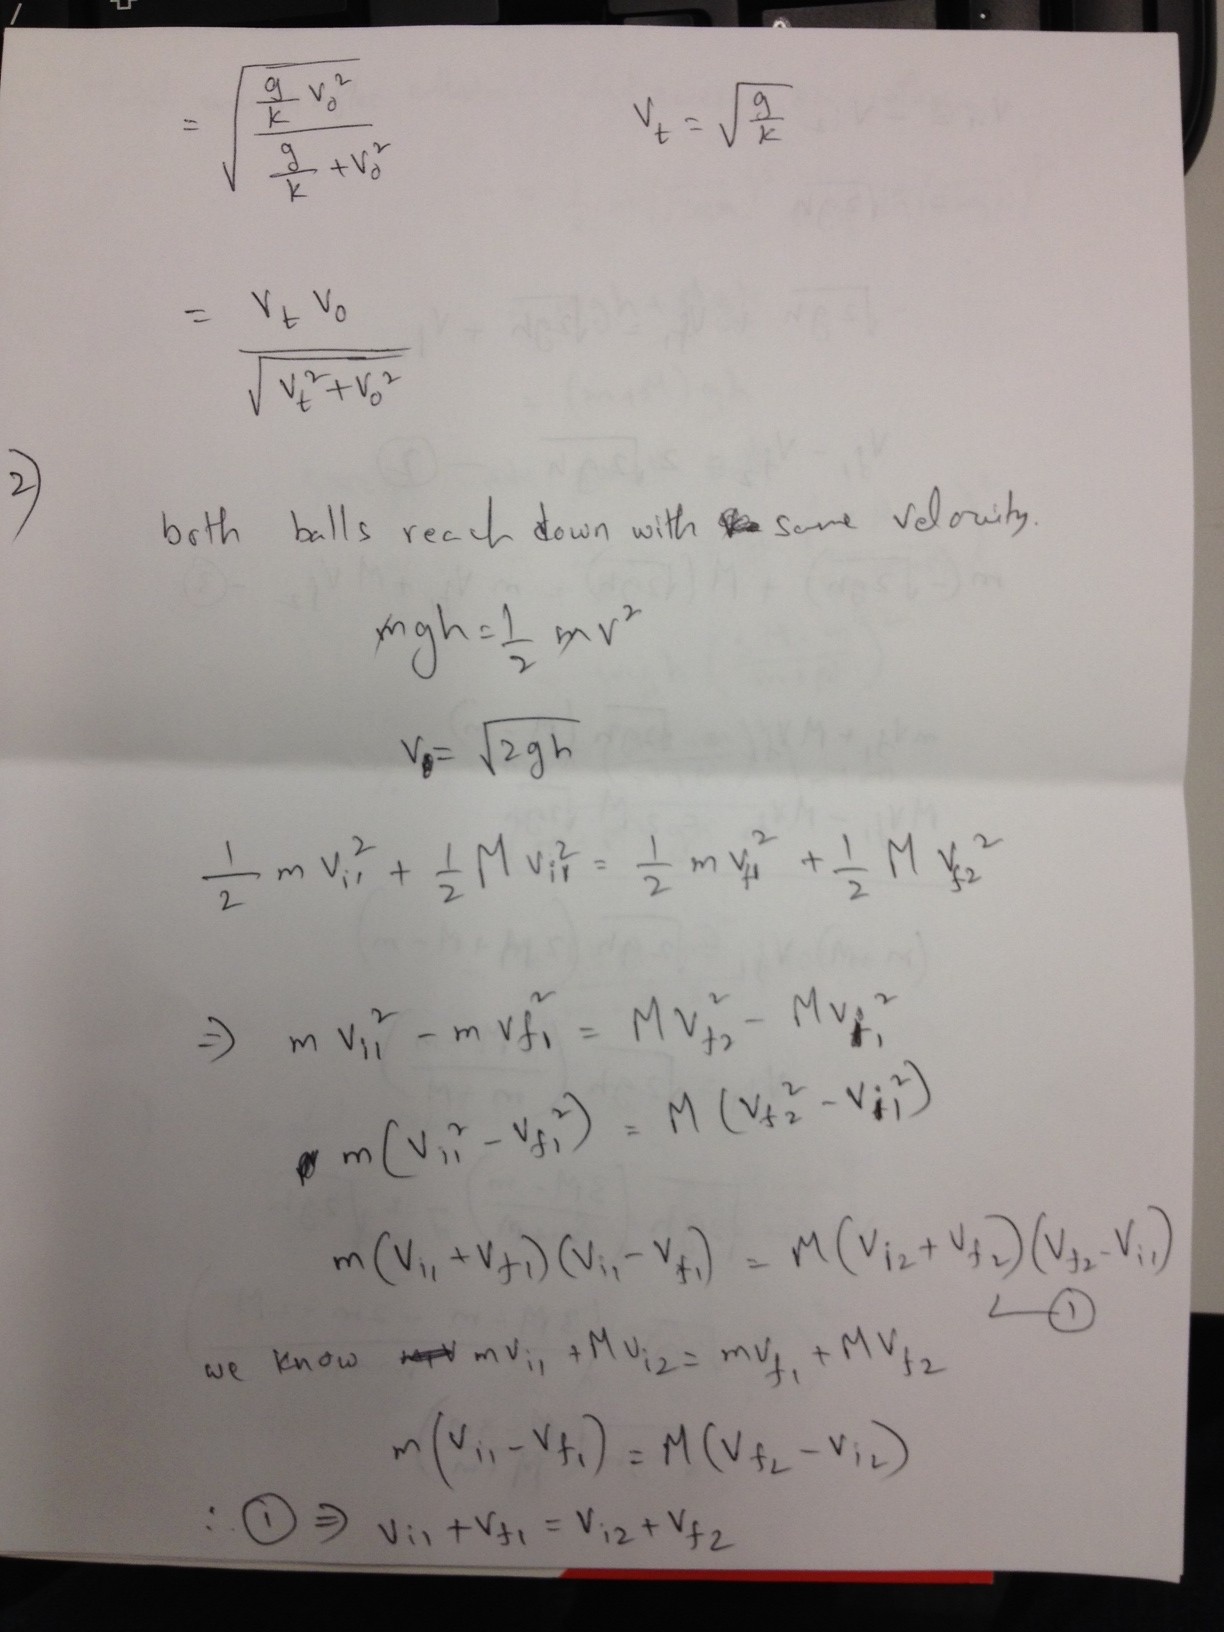 = √( (g/k v₀²) / (g/k + v₀²) )
V_t = √(g/k)
= V_t V₀ / √(V_t² + V₀²)
2)
both balls reach down with same velocity.
mgh = 1/2 mv²
v = √2gh
1/2 m v_i1² + 1/2 M v_i1² = 1/2 m v_f1² + 1/2 M v_f2²
⇒ m v_i1² - m v_f1² = M v_f2² - M v_f1²
m(v_i1² - v_f1²) = M (v_f2² - v_i1²)
m(v_i1 + v_f1)(v_i1 - v_f1) = M(v_i2 + v_f2)(v_f2 - v_i1)
①
we know m v_i1 + M v_i2 = m v_f1 + M v_f2
m(v_i1 - v_f1) = M(v_f2 - v_i2)
∴ ① ⇒ v_i1 + v_f1 = v_i2 + v_f2